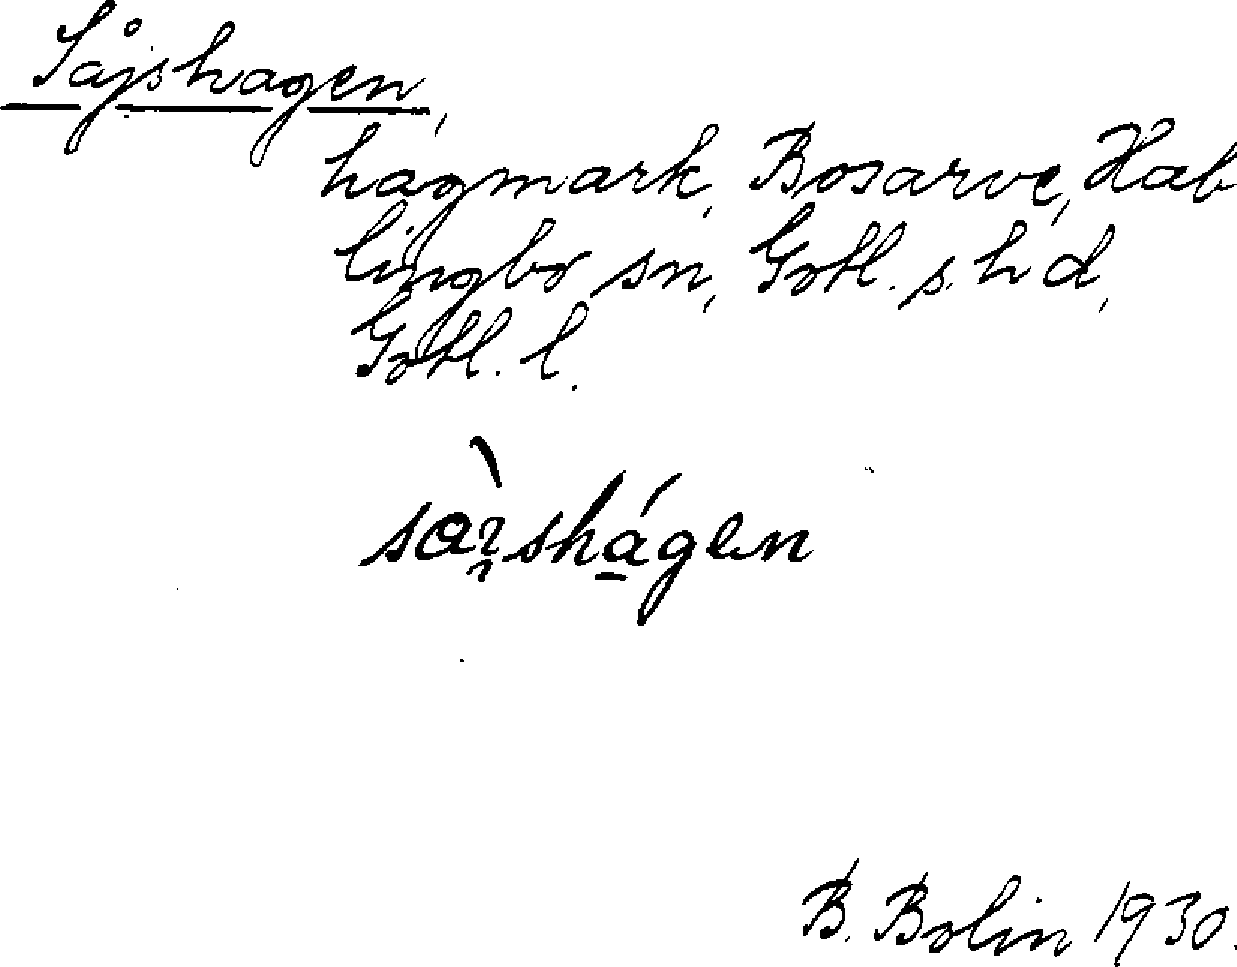 Såjshagen,
hagmark, Bosarve, Hab
lingbo sn, Gotl. s. hd,
Gotl. l.
B. Bolin 1930.